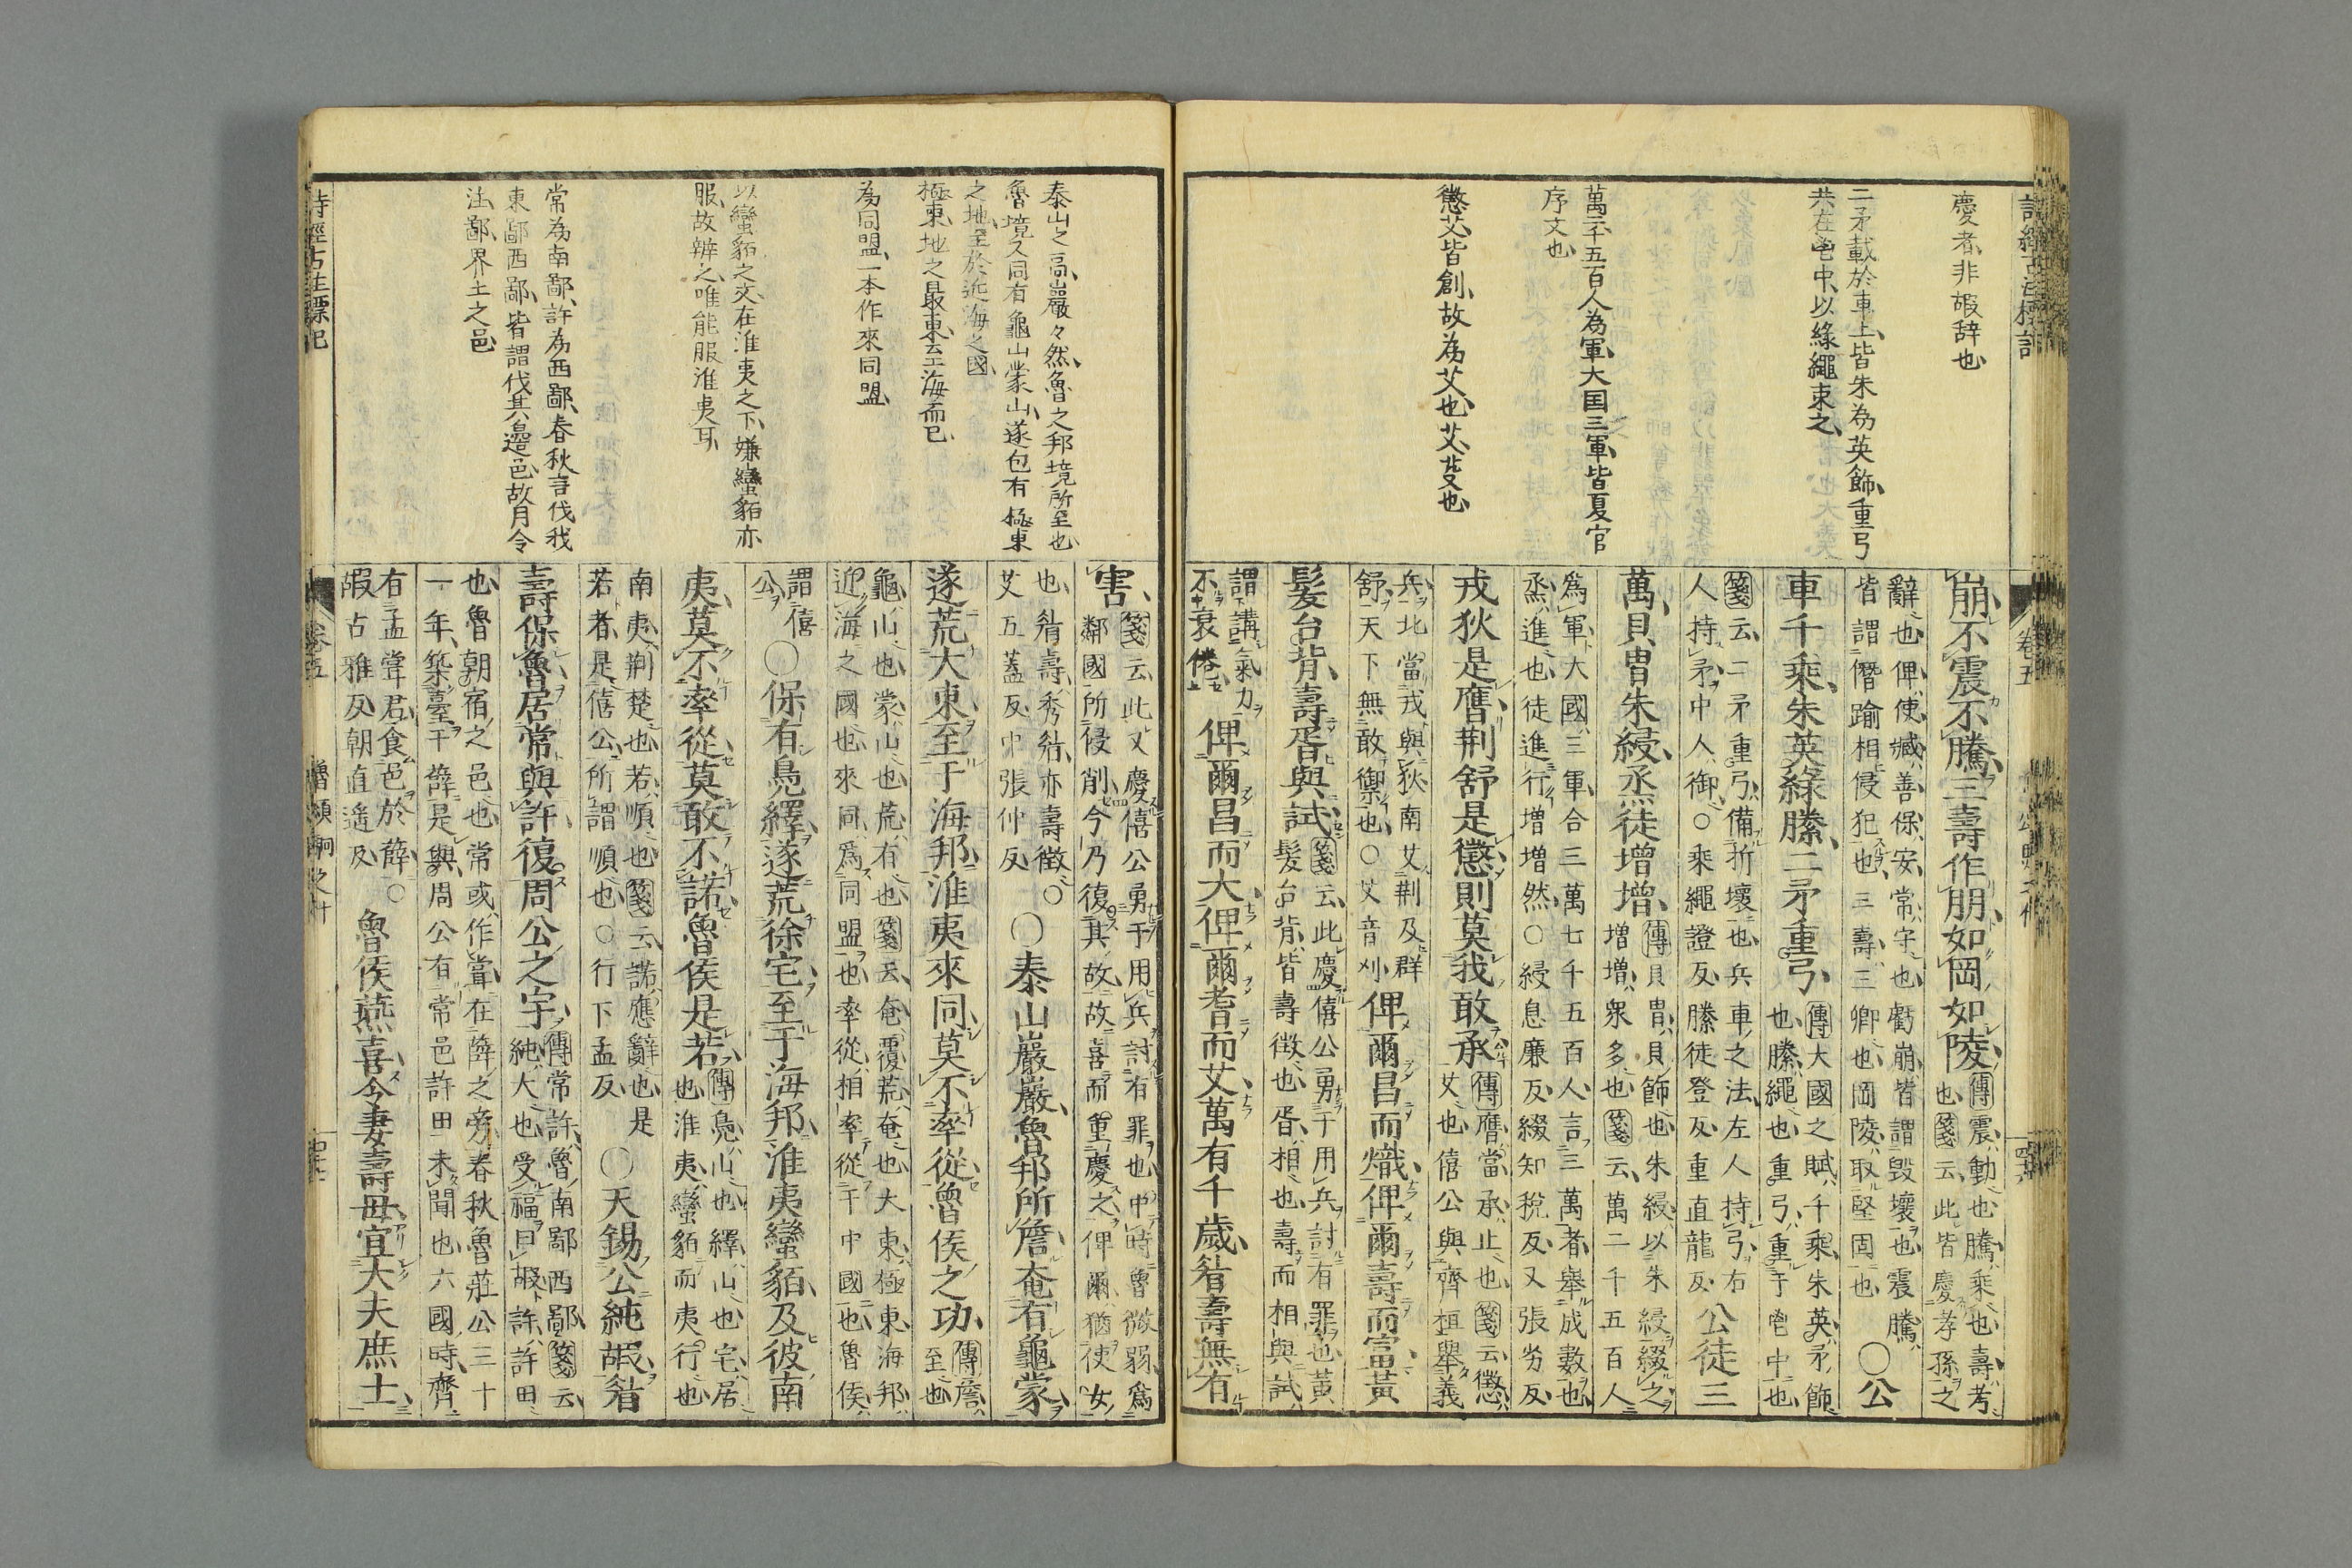 慶者非嘏辞也
二矛載於車上皆朱為英飾重弓
共在鬯中以緑繩束之
萬二千五百人為軍大国三軍皆夏官
序文也
懲艾皆創故為艾也艾芟也
卷五
崩不震不騰三壽作朋如岡如陵
傳震動也騰乘也壽考
也箋云此皆慶孝孫之
辭也俾使臧善保安常守也虧崩皆謂毀壞也震騰
皆謂僭踰相侵犯也三壽三卿也岡陵取堅固也
○公
車千乘朱英綠縢二矛重弓
傳大國之賦千乘朱英矛飾
也縢繩也重弓重于鬯中也
箋云二矛重弓備折壞也兵車之法左人持弓右
人持矛中人御○乘繩證反縢徒登反重直龍反
公徒三
萬貝冑朱綅烝徒增增
傳貝冑貝飾也朱綅以朱綅綴之
增增眾多也箋云萬二千五百人
為軍大國三軍合三萬七千五百人言三萬者舉成數也
烝進也徒進行增增然○綅息廉反綴知稅反又張劣反
戎狄是膺荆舒是懲則莫我敢承
傳膺當承止也箋云懲
艾也僖公與齊桓舉義
兵北當戎與狄南艾荆及群
舒天下無敢禦也○艾音刈
俾爾昌而熾俾爾壽而富黃
髮台背壽胥與試
箋云此慶僖公勇于用兵討有罪也黃
髮台背皆壽徵也胥相也壽而相與試
謂講氣力
不衰倦
俾爾昌而大俾爾耆而艾萬有千歲眉壽無有
泰山之高巖々然魯之邦境所至也
魯境又同有龜山蒙山遂包有極東
之地至於近海之國
極東地之最東云海而已
為同盟一本作來同盟
以蠻貊之文在淮夷之下嫌蠻貊亦
服故辨之唯能服淮夷耳
常為南鄙許為西鄙春秋言伐我
東鄙西鄙皆謂伐其邊邑故月令
注鄙界上之邑
害
箋云此又慶僖公勇于用兵討有罪也中時魯微弱為
鄰國所侵削今乃復其故故喜而重慶之俾爾猶使女
也眉壽秀眉亦壽徵○
艾五蓋反中張仲反
○泰山巖巖魯邦所詹奄有龜蒙
遂荒大東至于海邦淮夷來同莫不率從魯侯之功
傳詹
至也
龜山也蒙山也荒有也箋云奄覆荒奄也大東極東海邦
迎海之國也來同為同盟也率從相率從于中國也魯侯
謂僖
公
○保有鳧繹遂荒徐宅至于海邦淮夷蠻貊及彼南
夷莫不率從莫敢不諾魯侯是若
傳鳧山也繹山也宅居
也淮夷蠻貊而夷行也
南夷荆楚也若順也箋云諾應辭也是
若者是僖公所謂順也○行下孟反
○天錫公純嘏眉
壽保魯居常與許復周公之宇
傳常許魯南鄙西鄙箋云
純大也受福曰嘏許許田
也魯朝宿之邑也常或作嘗在薛之旁春秋魯莊公三十
一年築臺于薛是與周公有常邑許田未聞也六國時齊
有孟嘗君食邑於薛○
嘏古雅反朝直遙反
魯侯燕喜令妻壽母宜大夫庶士
詩經古注標記
卷五
魯頌駉之什